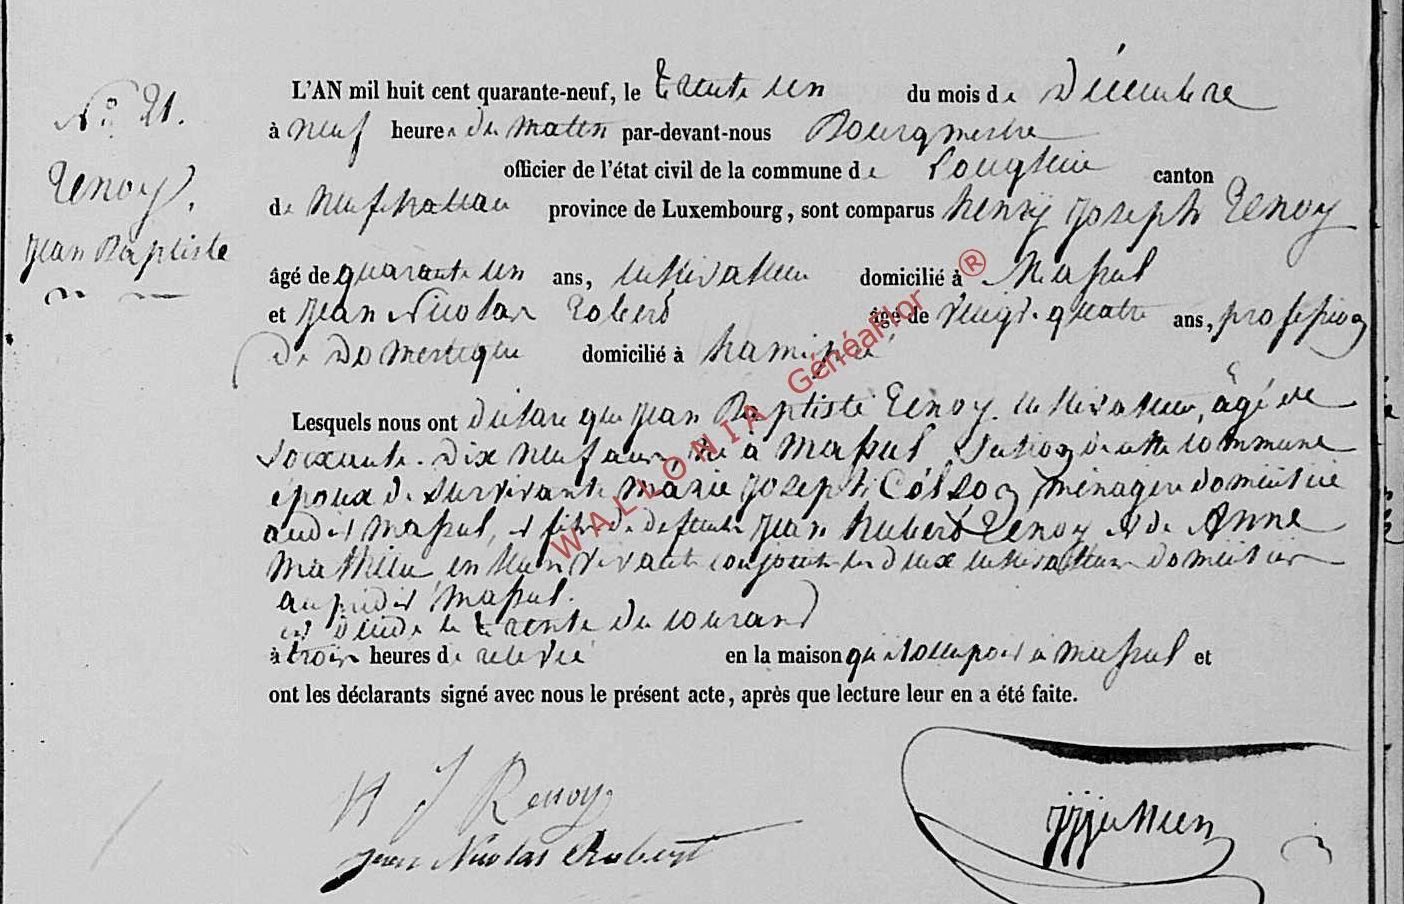 N° 21.
Renoy,
Jean Baptiste
L'AN mil huit cent quarante-neuf, le trente un du mois de Décembre
à neuf heures du matin par-devant-nous Bourgmestre
officier de l'état civil de la commune de Longlier canton
de Neufchateau province de Luxembourg, sont comparus henry joseph Renoy
âgé de quarante un ans, cultivateur domicilié à Massul
et jean Nicolas Robert âgé de vingt-quatre ans, profession
de Domestique domicilié à hamipré
Lesquels nous ont déclaré que jean Baptiste Renoy cultivateur, âgé de
soixante-dix neuf ans, né à Massul Section de cette commune
époux de survivante marie joseph Colson ménagère domiciliée
audit massul, et fils de défunts jean hubert Renoy et de Anne
Mathieu, en leur vivant conjoints les deux cultivateurs domiciliés
au prédit massul.
est décédé le trente du courand
à trois heures de relevée en la maison qu'il occupoit à massul et
ont les déclarants signé avec nous le présent acte, après que lecture leur en a été faite.
H J Renoy
jean Nicolas Robert
WALLONIA GénéaFlor ®